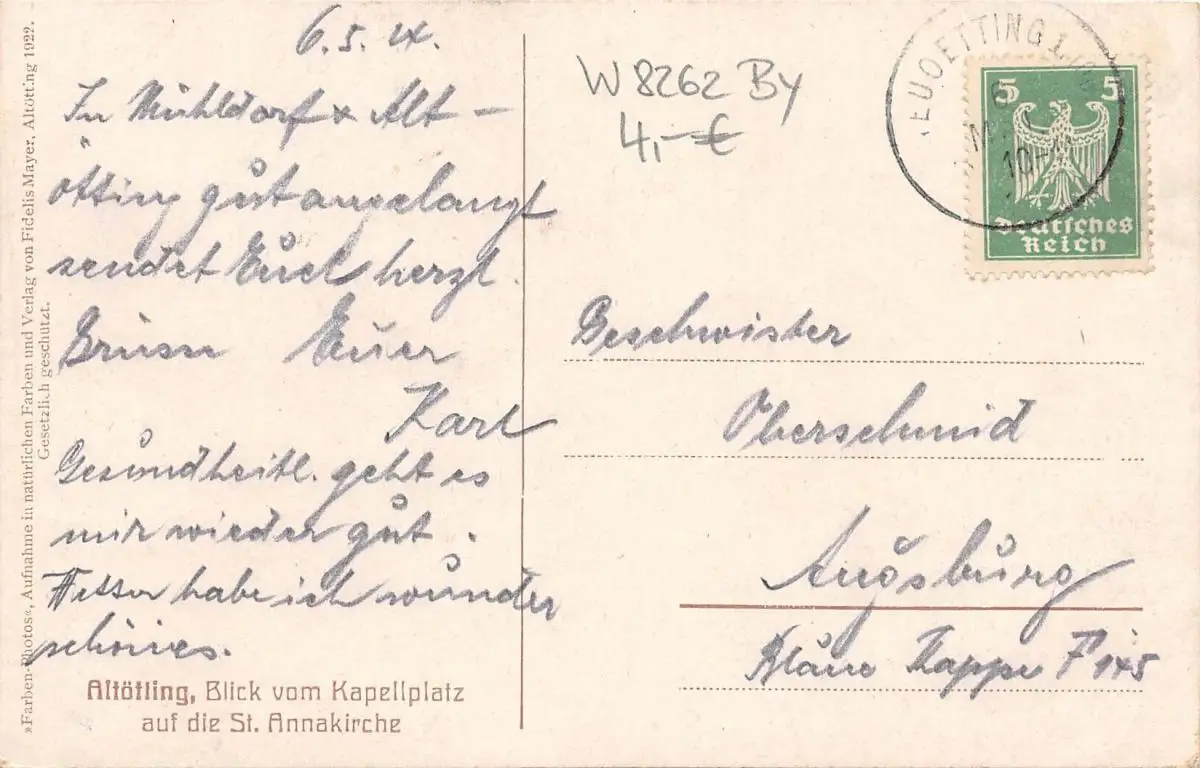 6. 5.
In Mühldorf & Alt-
ötting gut angelangt
sendet Euch herzl.
Grüsse Euer
Karl
Gesundheitl. geht es
mir wieder gut.
habe ich wunder
schönes.
Altötting, Blick vom Kapellplatz
auf die St. Annakirche
»Farben-Photos«, Aufnahme in natürlichen Farben und Verlag von Fidelis Mayer, Altötting 1922.
Gesetzlich geschützt.
W 8262 By
4,-€
5 5
Deutsches
Reich
Geschwister
Oberschmid
Augsburg
Kappe